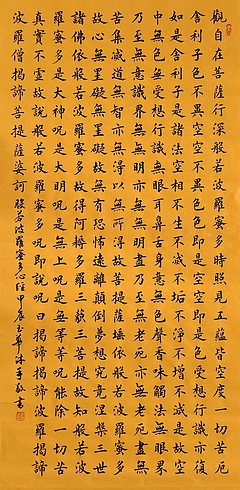 觀自在菩薩行深般若波羅蜜多時照見五蘊皆空度一切苦厄
舍利子色不異空空不異色色即是空空即是色受想行識亦復
如是舍利子是諸法空相不生不滅不垢不淨不增不減是故空
中無色無受想行識無眼耳鼻舌身意無色聲香味觸法無眼界
乃至無意識界無無明亦無無明盡乃至無老死亦無老死盡無
苦集滅道無智亦無得以無所得故菩提薩埵依般若波羅蜜多
故心無罣礙無罣礙故無有恐怖遠離顛倒夢想究竟涅槃三世
諸佛依般若波羅蜜多故得阿耨多羅三藐三菩提故知般若波
羅蜜多是大神呪是大明呪是無上呪是無等等呪能除一切苦
真實不虛故說般若波羅蜜多呪即說呪曰揭諦揭諦波羅揭諦
波羅僧揭諦菩提薩婆訶 般若波羅蜜多心經 沐手敬書